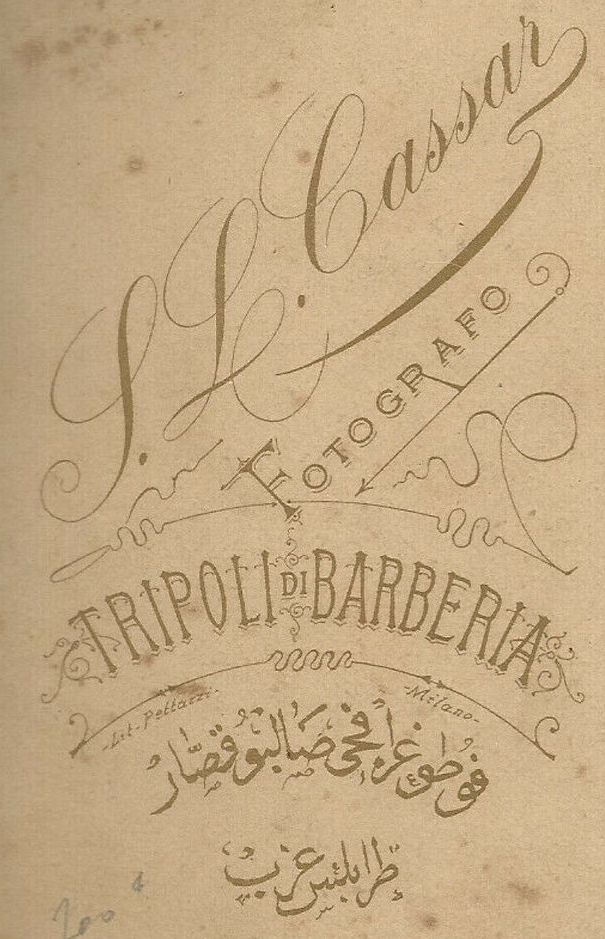 S. L. Cassar
FOTOGRAFO
TRIPOLI DI BARBERIA
-Lit-Pettazzi- -Milano-
فوطوغرافجی صالبو قصّار
طرابلس غرب